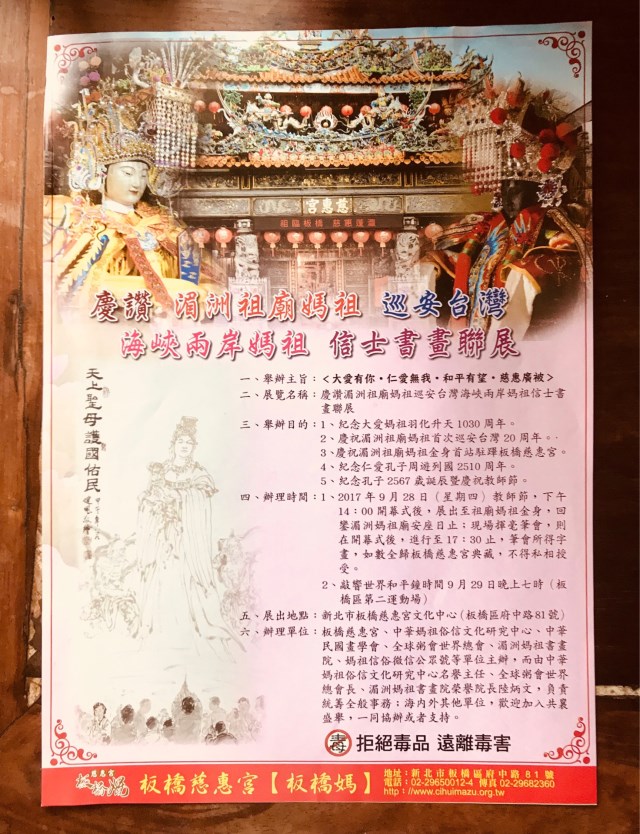 慈惠宮
祖臨板橋 莊嚴蓬瀛
慶讚 湄洲祖廟媽祖 巡安台灣
海峽兩岸媽祖 信士書畫聯展
天上聖母護國佑民
一、舉辦主旨：＜大愛有你・仁愛無我・和平有望・慈惠廣被＞
二、展覽名稱：慶讚湄洲祖廟媽祖巡安台灣海峽兩岸媽祖信士書
畫聯展
三、舉辦目的：1、紀念大愛媽祖羽化升天 1030 周年。
2、慶祝湄洲祖廟媽祖首次巡安台灣 20 周年。
3、慶祝湄洲祖廟媽祖金身首站駐蹕板橋慈惠宮。
4、紀念仁愛孔子周遊列國 2510 周年。
5、紀念孔子 2567 歲誕辰暨慶祝教師節。
四、辦理時間：1、2017 年 9 月 28 日（星期四）教師節，下午
14：00 開幕式後，展出至祖廟媽祖金身，回
鑾湄洲媽祖廟安座日止；現場揮毫筆會，則
在開幕式後，進行至 17：30 止，筆會所得字
畫，如數全歸板橋慈惠宮典藏，不得私相授
受。
2、敲響世界和平鐘時間 9 月 29 日晚上七時（板
橋區第二運動場）
五、展出地點：新北市板橋慈惠宮文化中心（板橋區府中路 81 號）
六、辦理單位：板橋慈惠宮、中華媽祖俗信文化研究中心、中華
民國畫學會、全球粥會世界總會、湄洲媽祖書畫
院、媽祖信俗微信公眾號等單位主辦，而由中華
媽祖俗信文化研究中心名譽主任、全球粥會世界
總會長、湄洲媽祖書畫院榮譽院長陸炳文，負責
統籌全般事務；海內外其他單位，歡迎加入共襄
盛舉，一同協辦或者支持。
毒 拒絕毒品 遠離毒害
慈惠宮
板橋媽
板橋慈惠宮【板橋媽】
地址：新北市板橋區府中路81號
電話：02-29650012-4 傳真 02-29682360
http：//www.cihuimazu.org.tw